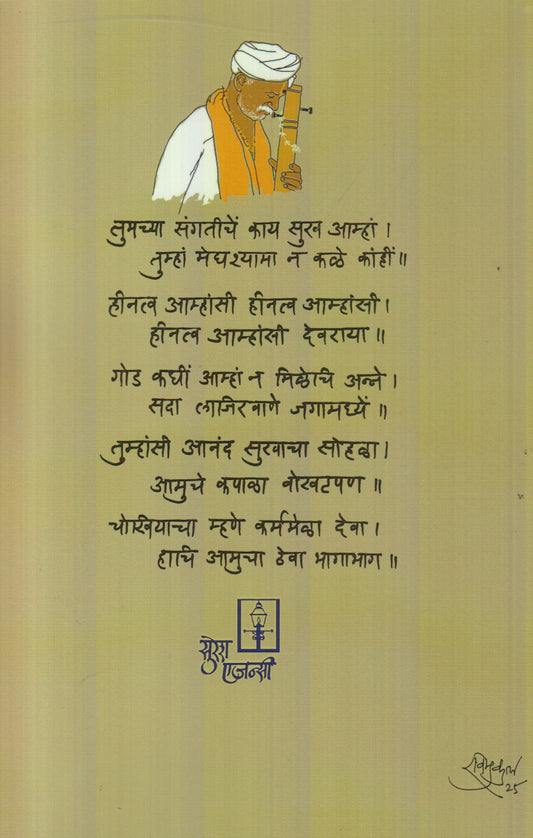 तुमच्या संगतीचें काय सुख आम्हां ।
तुम्हां मेघश्यामा न कळे कांहीं ॥
हीनत्व आम्हांसी हीनत्व आम्हांसी ।
हीनत्व आम्हांसी देवराया ॥
गोड कधीं आम्हां न मिळेचि अन्ने ।
सदा लाजिरवाणे जगामध्यें ॥
तुम्हांसी आनंद सुखाचा सोहळा ।
आमुचे कपाळा वोखटपण ॥
चोखियाचा म्हणे कर्ममेळा देवा ।
हाचि आमुचा ठेवा भागाभाग ॥
सुरेश
एजन्सी
25